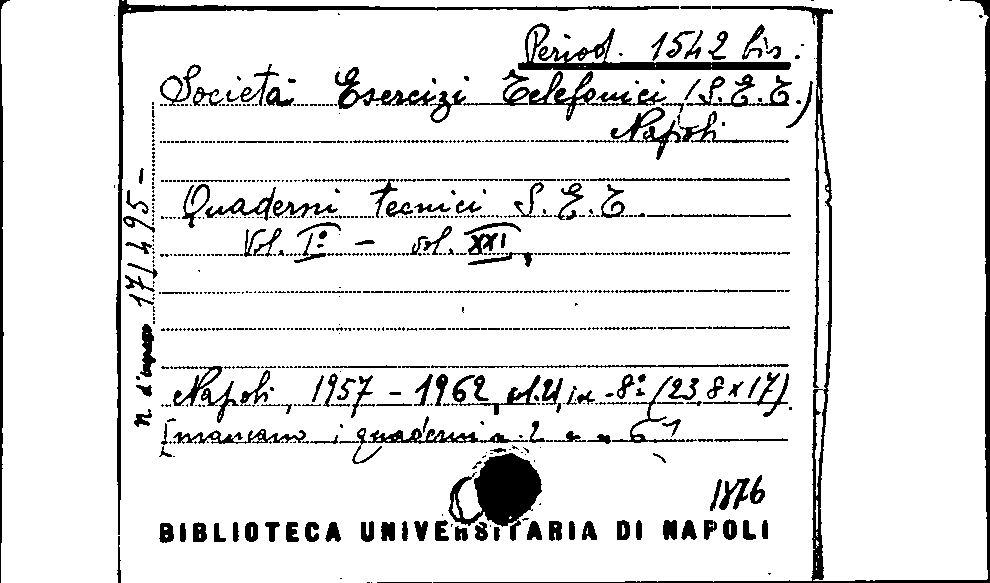 Period. 1542 bis.
Società Esercizi Telefonici (S.E.T.)
Napoli
Quaderni tecnici S.E.T.
Vol. I° - vol. XXI,
Napoli, 1957 - 1962, in-8° (23,8x17)
[mancano i quaderni n. 2 e n. 6]
1876
BIBLIOTECA UNIVERSITARIA DI NAPOLI
n. d'ingresso 171495-